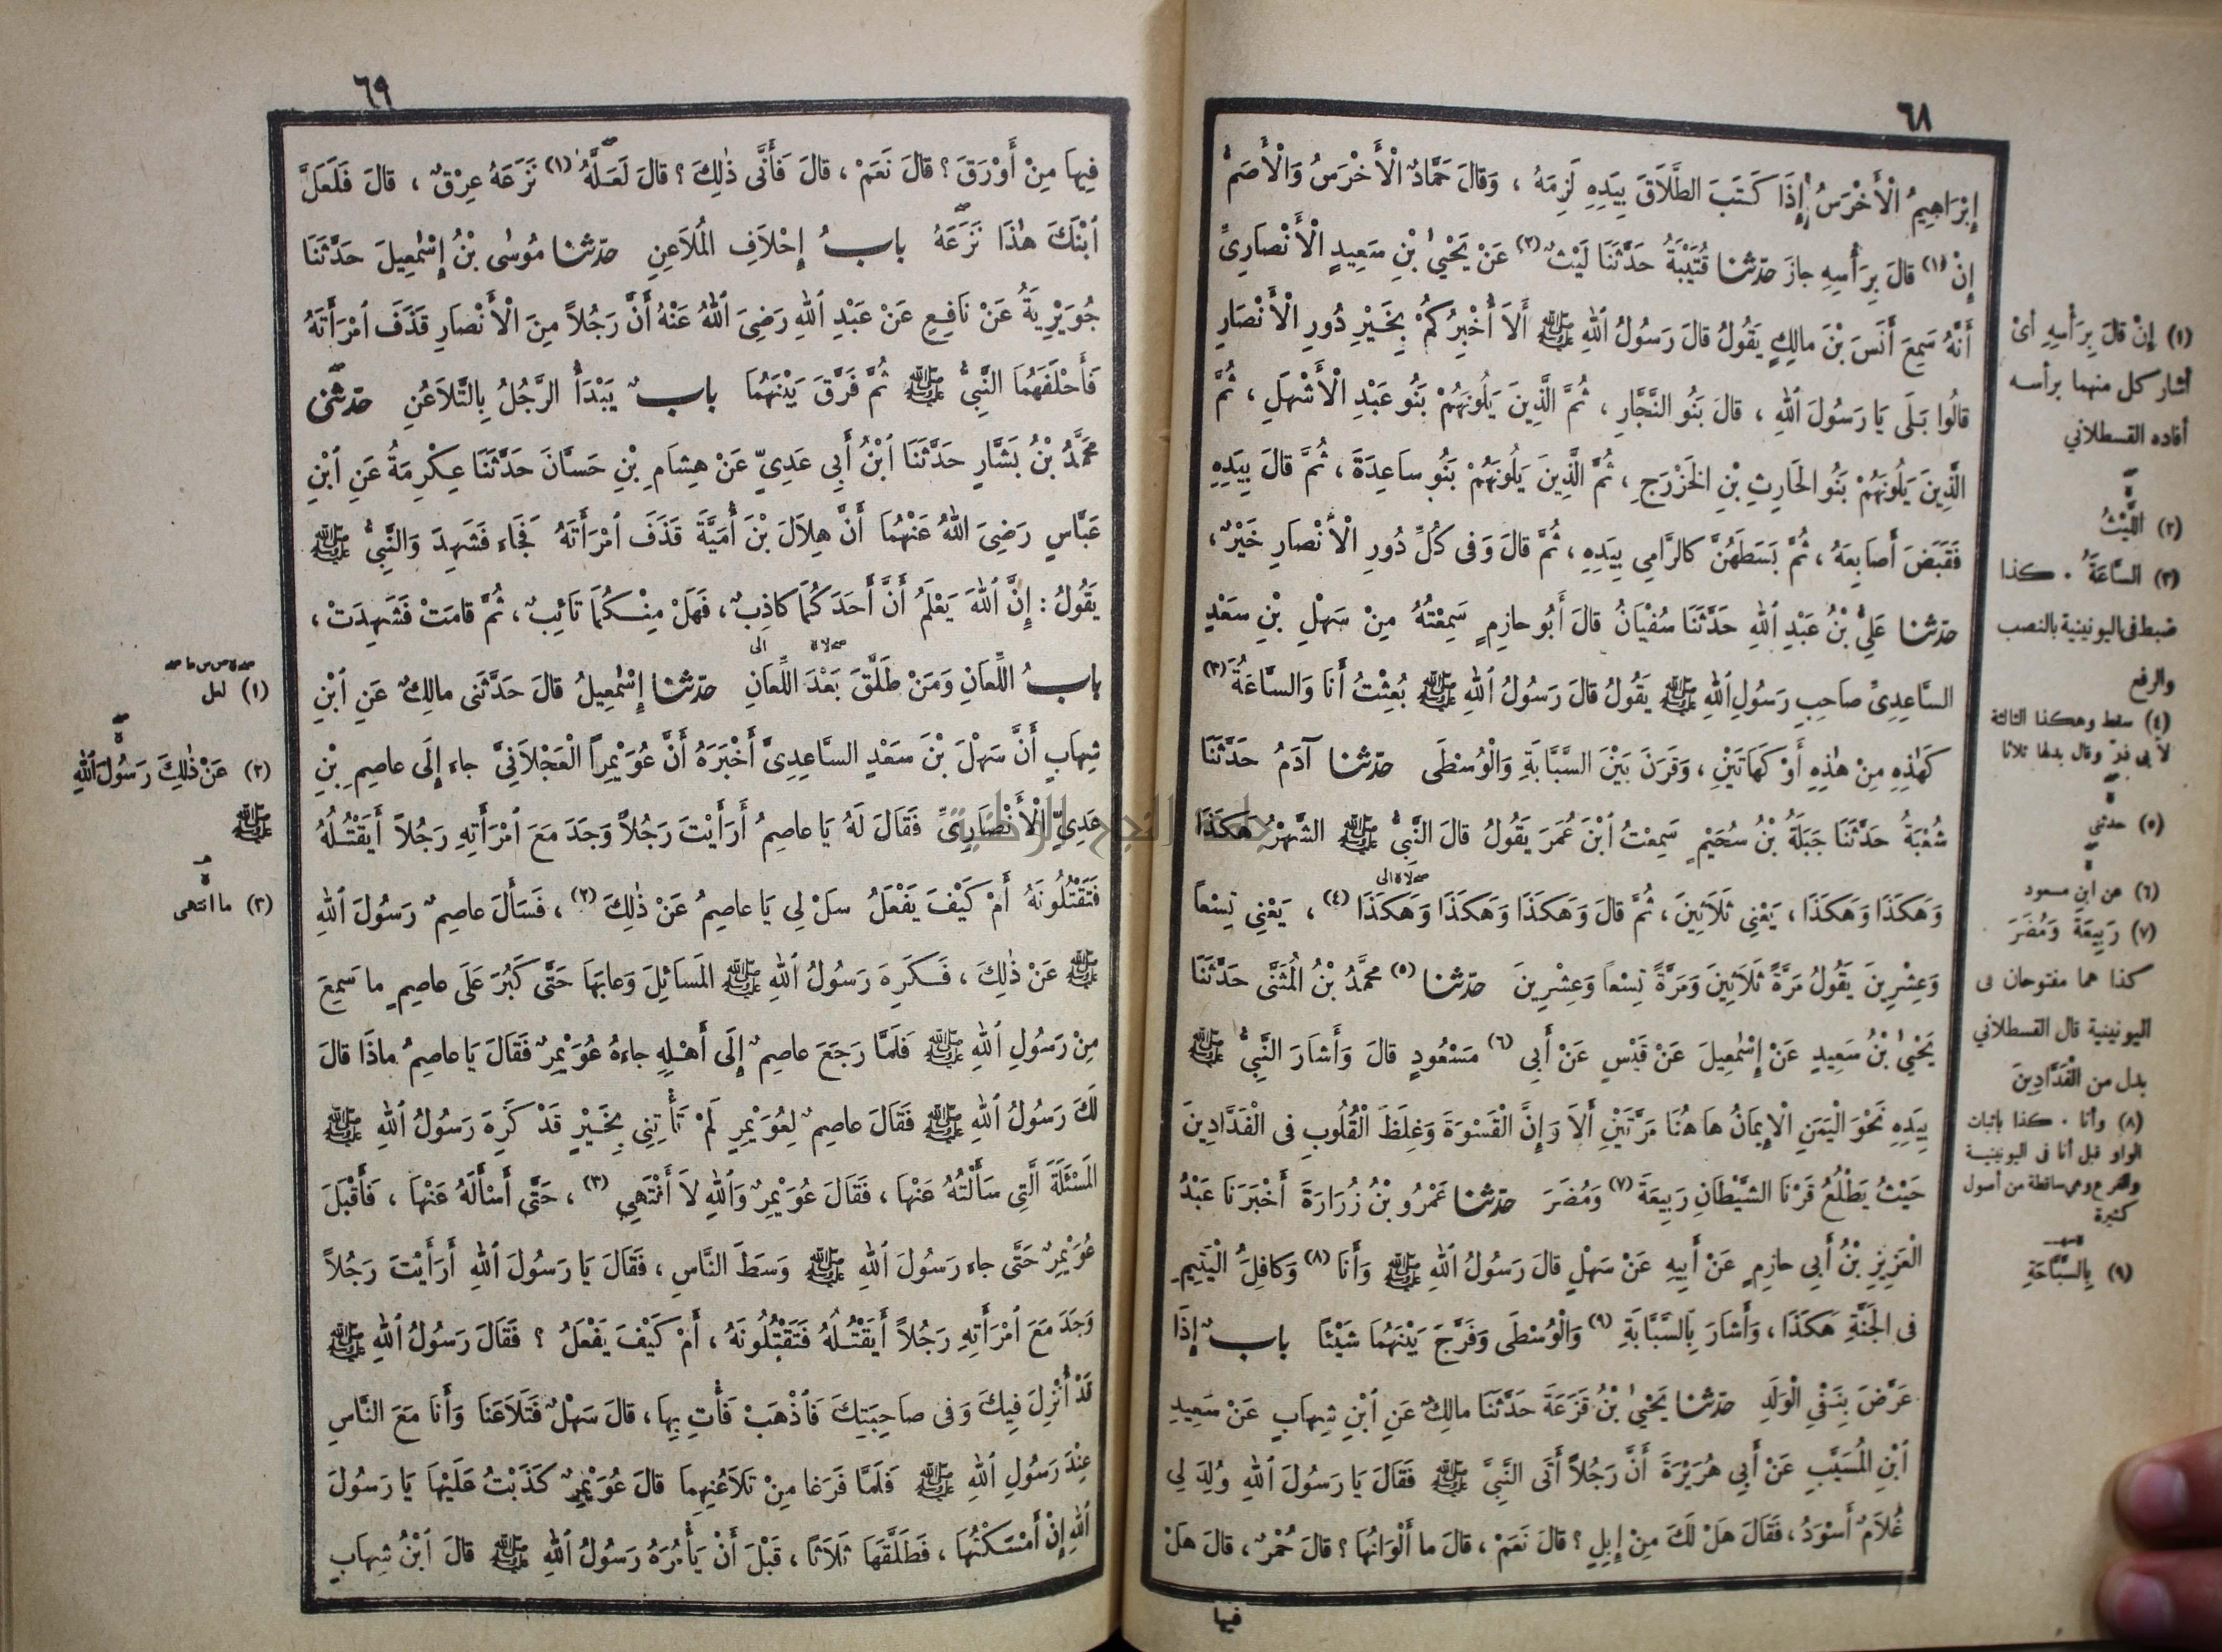 ٦٨
إِبْرَاهِيمُ الْأَخْرَسُ إِذَا كَتَبَ الطَّلَاقَ بِيَدِهِ لَزِمَهُ ، وَقالَ حَمَّادٌ الْأَخْرَسُ وَالْأَصَمُّ
إِنْ (١) قالَ بِرَأْسِهِ جازَ حدثنا قُتَيْبَةُ حَدَّثَنَا لَيْثٌ (٢) عَنْ يَحْيىٰ بْنِ سَعِيدٍ الْأَنْصَارِيِّ
أَنَّهُ سَمِعَ أَنَسَ بْنَ مالِكٍ يَقُولُ قالَ رَسُولُ اللهِ ﷺ أَلاَ أُخْبِرُكُمْ بِخَيْرِ دُورِ الْأَنْصَارِ
قالُوا بَلَى يَا رَسُولَ اللهِ ، قالَ بَنُو النَّجَّارِ ، ثُمَّ الَّذِينَ يَلُونَهُمْ بَنُو عَبْدِ الْأَشْهَلِ ، ثُمَّ
الَّذِينَ يَلُونَهُمْ بَنُو الحَارِثِ بْنِ الخَزْرَجِ ، ثُمَّ الَّذِينَ يَلُونَهُمْ بَنُو ساعِدَةَ ، ثُمَّ قالَ بِيَدِهِ
فَقَبَضَ أَصَابِعَهُ ، ثُمَّ بَسَطَهُنَّ كالرَّامِي بِيَدِهِ ، ثُمَّ قالَ وَفى كُلِّ دُورِ الْأَنْصَارِ خَيْرٌ ،
حدثنا عَلِيُّ بْنُ عَبْدِ اللهِ حَدَّثَنَا سُفْيَانُ قالَ أَبُو حازِمٍ سَمِعْتُهُ مِنْ سَهْلِ بْنِ سَعْدٍ
السَّاعِدِيِّ صاحِبِ رَسُولِ اللهِ ﷺ يَقُولُ قالَ رَسُولُ اللهِ ﷺ بُعِثْتُ أَنَا وَالسَّاعَةُ (٣)
كَهٰذِهِ مِنْ هٰذِهِ أَوْ كَهَاتَيْنِ ، وَقَرَنَ بَيْنَ السَّبَّابَةِ وَالْوُسْطَى حدثنا آدَمُ حَدَّثَنَا
شُعْبَةُ حَدَّثَنَا جَبَلَةُ بْنُ سُحَيْمٍ سَمِعْتُ ابْنَ عُمَرَ يَقُولُ قالَ النَّبِيُّ ﷺ الشَّهْرُ هَكَذَا
وَهَكَذَا وَهَكَذَا ، يَعْنِي ثَلَاثِينَ ، ثُمَّ قالَ وَهَكَذَا وَهَكَذَا وَهَكَذَا (٤) ، يَعْنِي تِسْعاً
وَعِشْرِينَ يَقُولُ مَرَّةً ثَلَاثِينَ وَمَرَّةً تِسْعاً وَعِشْرِينَ حدثنا (٥) مُحَمَّدُ بْنُ الْمُثَنَّى حَدَّثَنَا
يَحْيىٰ بْنُ سَعِيدٍ عَنْ إِسْمٰعِيلَ عَنْ قَيْسٍ عَنْ أَبِي (٦) مَسْعُودٍ قالَ وَأَشَارَ النَّبِيُّ ﷺ
بِيَدِهِ نَحْوَ الْيَمَنِ الْإِيمَانُ هَا هُنَا مَرَّتَيْنِ أَلاَ وَإِنَّ الْقَسْوَةَ وَغِلَظَ الْقُلُوبِ فى الْفَدَّادِينَ
حَيْثُ يَطْلُعُ قَرْنَا الشَّيْطَانِ رَبِيعَةَ (٧) وَمُضَرَ حدثنا عَمْرُو بْنُ زُرَارَةَ أَخْبَرَنَا عَبْدُ
الْعَزِيزِ بْنُ أَبِي حازِمٍ عَنْ أَبِيهِ عَنْ سَهْلٍ قالَ رَسُولُ اللهِ ﷺ وَأَنَا (٨) وَكافِلُ الْيَتِيمِ
فى الجَنَّةِ هَكَذَا ، وَأَشَارَ بِالسَّبَّابَةِ (٩) وَالْوُسْطَى وَفَرَّجَ بَيْنَهُمَا شَيْئًا باب إِذَا
عَرَّضَ بِنَفْيِ الْوَلَدِ حدثنا يَحْيىٰ بْنُ قَزَعَةَ حَدَّثَنَا مالِكٌ عَنِ ابْنِ شِهابٍ عَنْ سَعِيدِ
ابْنِ الْمُسَيَّبِ عَنْ أَبِي هُرَيْرَةَ أَنَّ رَجُلاً أَتَى النَّبِيَّ ﷺ فَقَالَ يَا رَسُولَ اللهِ وُلِدَ لِي
غُلاَمٌ أَسْوَدُ ، فَقَالَ هَلْ لَكَ مِنْ إِبِلٍ ؟ قالَ نَعَمْ ، قالَ ما أَلْوَانُهَا ؟ قالَ حُمْرٌ ، قالَ هَلْ
فيها
(١) إِنْ قالَ بِرَأْسِهِ أىْ
أشار كل منهما برأسه
أفاده القسطلاني
(٢) اللَّيْثُ
(٣) السَّاعَةُ . كذا
ضبط فى اليونينية بالنصب
والرفع
(٤) سقط وهكذا الثالثة
لأبى ذرّ وقال بدلها ثلاثا
(٥) حدثنى
(٦) عن ابن مسعود
(٧) رَبِيعَةَ وَمُضَرَ
كذا هما مفتوحان فى
اليونينية قال القسطلاني
بدل من الْفَدَّادِينَ
(٨) وأنا . كذا باثبات
الواو قبل أنا فى اليونينية
والفرع وهى ساقطة من أصول
كثيرة
(٩) بِالسَّبَّاحَةِ
٦٩
فِيهَا مِنْ أَوْرَقَ ؟ قالَ نَعَمْ ، قالَ فَأَنَّى ذٰلِكَ ؟ قالَ لَعَلَّهُ (١) نَزَعَهُ عِرْقٌ ، قالَ فَلَعَلَّ
ابْنَكَ هٰذَا نَزَعَهُ باب إِحْلاَفِ المُلاَعِنِ حدثنا مُوسٰى بْنُ إِسْمٰعِيلَ حَدَّثَنَا
جُوَيْرِيَةُ عَنْ نَافِعٍ عَنْ عَبْدِ اللهِ رَضِيَ اللهُ عَنْهُ أَنَّ رَجُلاً مِنَ الْأَنْصَارِ قَذَفَ امْرَأَتَهُ
فَأَحْلَفَهُمَا النَّبِيُّ ﷺ ثُمَّ فَرَّقَ بَيْنَهُمَا باب يَبْدَأُ الرَّجُلُ بِالتَّلاَعُنِ حدثنى
مُحَمَّدُ بْنُ بَشَّارٍ حَدَّثَنَا ابْنُ أَبِي عَدِيٍّ عَنْ هِشَامِ بْنِ حَسَّانَ حَدَّثَنَا عِكْرِمَةُ عَنِ ابْنِ
عَبَّاسٍ رَضِيَ اللهُ عَنْهُمَا أَنَّ هِلاَلَ بْنَ أُمَيَّةَ قَذَفَ امْرَأَتَهُ فَجَاءَ فَشَهِدَ وَالنَّبِيُّ ﷺ
يَقُولُ : إِنَّ اللهَ يَعْلَمُ أَنَّ أَحَدَكُمَا كاذِبٌ ، فَهَلْ مِنْكُمَا تَائِبٌ ، ثُمَّ قامَتْ فَشَهِدَتْ ،
باب اللِّعَانِ وَمَنْ طَلَّقَ بَعْدَ اللِّعَانِ حدثنا إِسْمٰعِيلُ قالَ حَدَّثَنِى مالِكٌ عَنِ ابْنِ
شِهَابٍ أَنَّ سَهْلَ بْنَ سَعْدٍ السَّاعِدِيَّ أَخْبَرَهُ أَنَّ عُوَيْمِراً الْعَجْلاَنِيَّ جاءَ إِلَى عاصِمِ بْنِ
عَدِيٍّ الْأَنْصَارِيِّ فَقَالَ لَهُ يَا عاصِمُ أَرَأَيْتَ رَجُلاً وَجَدَ مَعَ امْرَأَتِهِ رَجُلاً أَيَقْتُلُهُ
فَتَقْتُلُونَهُ أَمْ كَيْفَ يَفْعَلُ سَلْ لِي يَا عاصِمُ عَنْ ذٰلِكَ (٢) ، فَسَأَلَ عاصِمٌ رَسُولَ اللهِ
ﷺ عَنْ ذٰلِكَ ، فَكَرِهَ رَسُولُ اللهِ ﷺ المَسَائِلَ وَعابَهَا حَتَّى كَبُرَ عَلَى عاصِمٍ ما سَمِعَ
مِنْ رَسُولِ اللهِ ﷺ فَلَمَّا رَجَعَ عاصِمٌ إِلَى أَهْلِهِ جاءَهُ عُوَيْمِرٌ فَقَالَ يَا عاصِمُ ماذَا قالَ
لَكَ رَسُولُ اللهِ ﷺ فَقَالَ عاصِمٌ لِعُوَيْمِرٍ لَمْ تَأْتِنِي بِخَيْرٍ قَدْ كَرِهَ رَسُولُ اللهِ ﷺ
المَسْئَلَةَ الَّتِي سَأَلْتُهُ عَنْهَا ، فَقَالَ عُوَيْمِرٌ وَاللهِ لاَ أَنْتَهِي (٣) ، حَتَّى أَسْأَلَهُ عَنْهَا ، فَأَقْبَلَ
عُوَيْمِرٌ حَتَّى جاءَ رَسُولَ اللهِ ﷺ وَسَطَ النَّاسِ ، فَقَالَ يَا رَسُولَ اللهِ أَرَأَيْتَ رَجُلاً
وَجَدَ مَعَ امْرَأَتِهِ رَجُلاً أَيَقْتُلُهُ فَتَقْتُلُونَهُ ، أَمْ كَيْفَ يَفْعَلُ ؟ فَقَالَ رَسُولُ اللهِ ﷺ
قَدْ أُنْزِلَ فِيكَ وَفى صَاحِبَتِكَ فَاذْهَبْ فَأْتِ بِهَا ، قالَ سَهْلٌ فَتَلاَعَنَا وَأَنَا مَعَ النَّاسِ
عِنْدَ رَسُولِ اللهِ ﷺ فَلَمَّا فَرَغا مِنْ تَلاَعُنِهِمَا قالَ عُوَيْمِرٌ كَذَبْتُ عَلَيْهَا يَا رَسُولَ
اللهِ إِنْ أَمْسَكْتُهَا ، فَطَلَّقَهَا ثَلاَثًا ، قَبْلَ أَنْ يَأْمُرَهُ رَسُولُ اللهِ ﷺ قالَ ابْنُ شِهَابٍ
(١) لعل
(٢) عَنْ ذٰلِكَ رَسُولَ اللهِ
ﷺ
(٣) ما انتهى